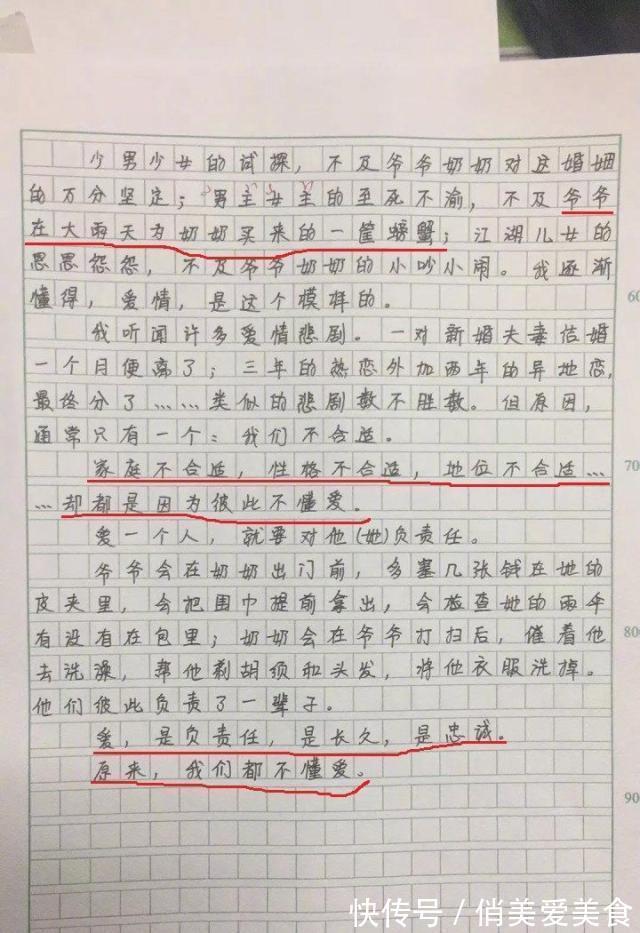 少男少女的试探，不及爷爷奶奶对这婚姻
的万分坚定；男主女主的至死不渝，不及爷爷
在大雨天为奶奶买来的一筐螃蟹；江湖儿女的
恩恩怨怨，不及爷爷奶奶的小吵小闹。我逐渐
懂得，爱情，是这个模样的。
60
我听闻许多爱情悲剧。一对新婚夫妻结婚
一个月便离了；三年的热恋外加两年的异地恋，
最终分了……类似的悲剧数不胜数。但原因，
通常只有一个：我们不合适。
家庭不合适，性格不合适，地位不合适…
70
…却都是因为彼此不懂爱。
爱一个人，就要对他(她)负责任。
爷爷会在奶奶出门前，多塞几张钱在她的
皮夹里，会把围巾提前拿出，会检查她的雨伞
有没有在包里；奶奶会在爷爷打扫后，催着他
80
去洗澡，帮他剃胡须和头发，将他衣服洗掉。
他们彼此负责了一辈子。
爱，是负责任，是长久，是忠诚。
原来，我们都不懂爱。
90
快传号／俏美爱美食